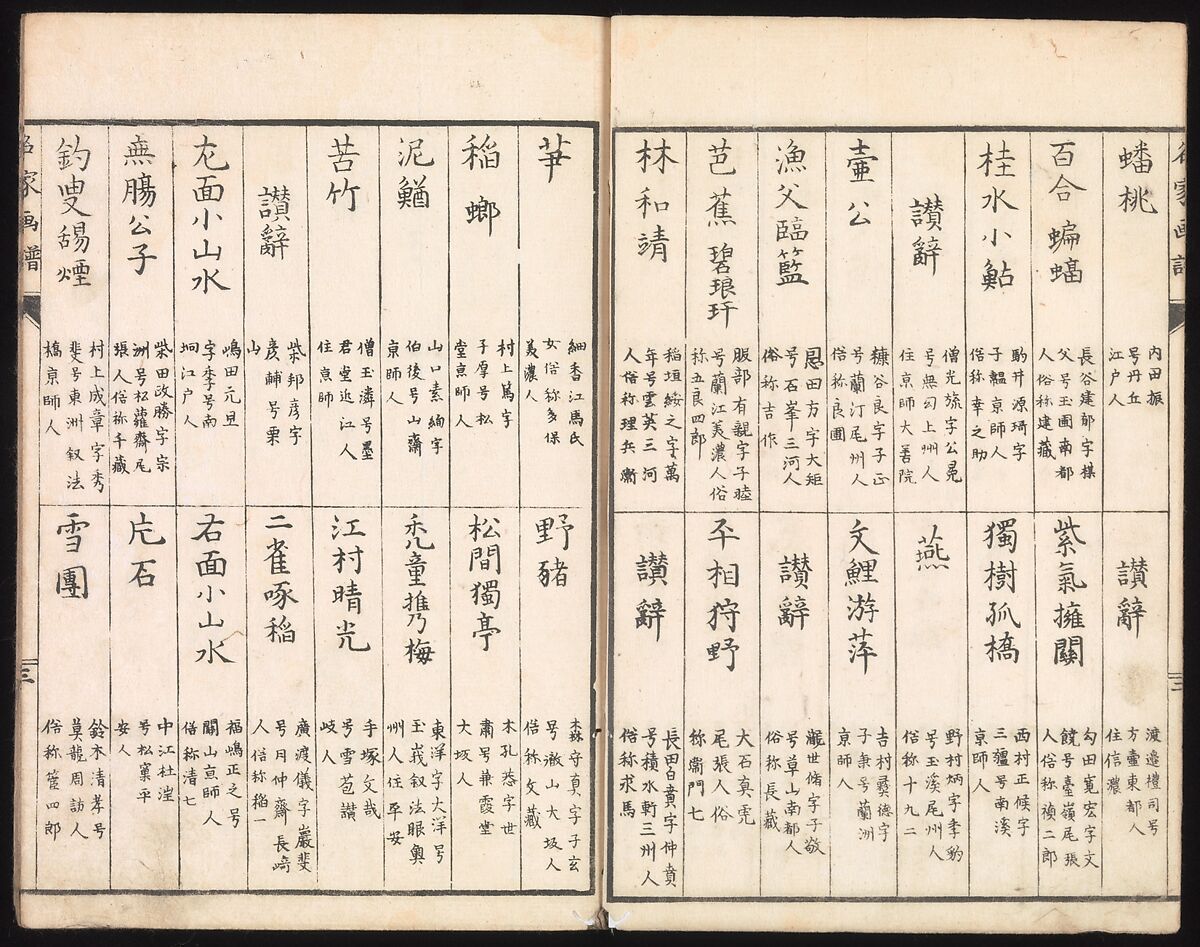 名家画譜
蟠桃
内田振
号丹丘
江戸人
百合 蝙蝠
長谷建郁字棋
父号玉圃南都
人俗称建蔵
桂水小鮎
駒井源琦字
子韞京師人
俗称幸之助
讃辭
僧光旒字公冕
号無勾上州人
住京師大善院
壷公
糠谷良字子正
号蘭汀尾州人
俗称良圃
漁父臨籃
恩田方字大矩
号石峯三河人
俗称吉作
芭蕉 碧琅玕
服部有親字子睦
号蘭江美濃人俗
称五良四郎
林和靖
稲垣綏之字萬
年号雲英三河
人俗称理兵衞
讃辭
渡邉禮司号
方壷東都人
住信濃
紫氣擁關
勾田寛宏字文
饒号臺嶺尾張
人俗称禎二郎
獨樹孤橋
西村正候字
三疆号南溪
京師人
燕
野村炳字季豹
号玉溪尾州人
俗称十九二
文鯉游萍
吉村彛德字
子秉号蘭洲
京師人
讃辭
世脩字子敬
号草山南都人
俗称長蔵
平相狩野
大石真虎
尾張人俗
称衞門七
讃辭
長田白賁字仲賁
号積水軒三州人
俗称求馬
笋
細香江馬氏
女俗称多保
美濃人
稲 螂
村上篤字
子厚号松
堂京師人
泥鰌
山口素絢字
伯後号山齋
京師人
苦竹
僧玉潾号墨
君堂近江人
住京師
讃辭
柴邦彦字
彦輔号栗
山
左面小山水
嶋田元旦
字季号南
垌江戸人
無膓公子
柴田政勝字宗
洲号松蘿齋尾
張人俗称千蔵
釣叟煬煙
村上成章字秀
斐号東洲叙法
橋京師人
野豬
森守真字子玄
号徹山大坂人
俗称文蔵
松間獨亭
木孔恭字世
肅号兼霞堂
大坂人
禿童携乃梅
東洋字大洋号
玉峩叙法眼奥
州人住平安
江村晴光
手塚文哉
号雪苞讃
岐人
二雀啄稲
廣渡儀字巖斐
号月仲齋長﨑
人俗称稲一
右面小山水
福嶋正之号
關山京師人
俗称清七
片石
中江杜澂
号松窠平
安人
雪團
鈴木清孝号
莫龍周訪人
俗称笹四郎
名家画譜
三